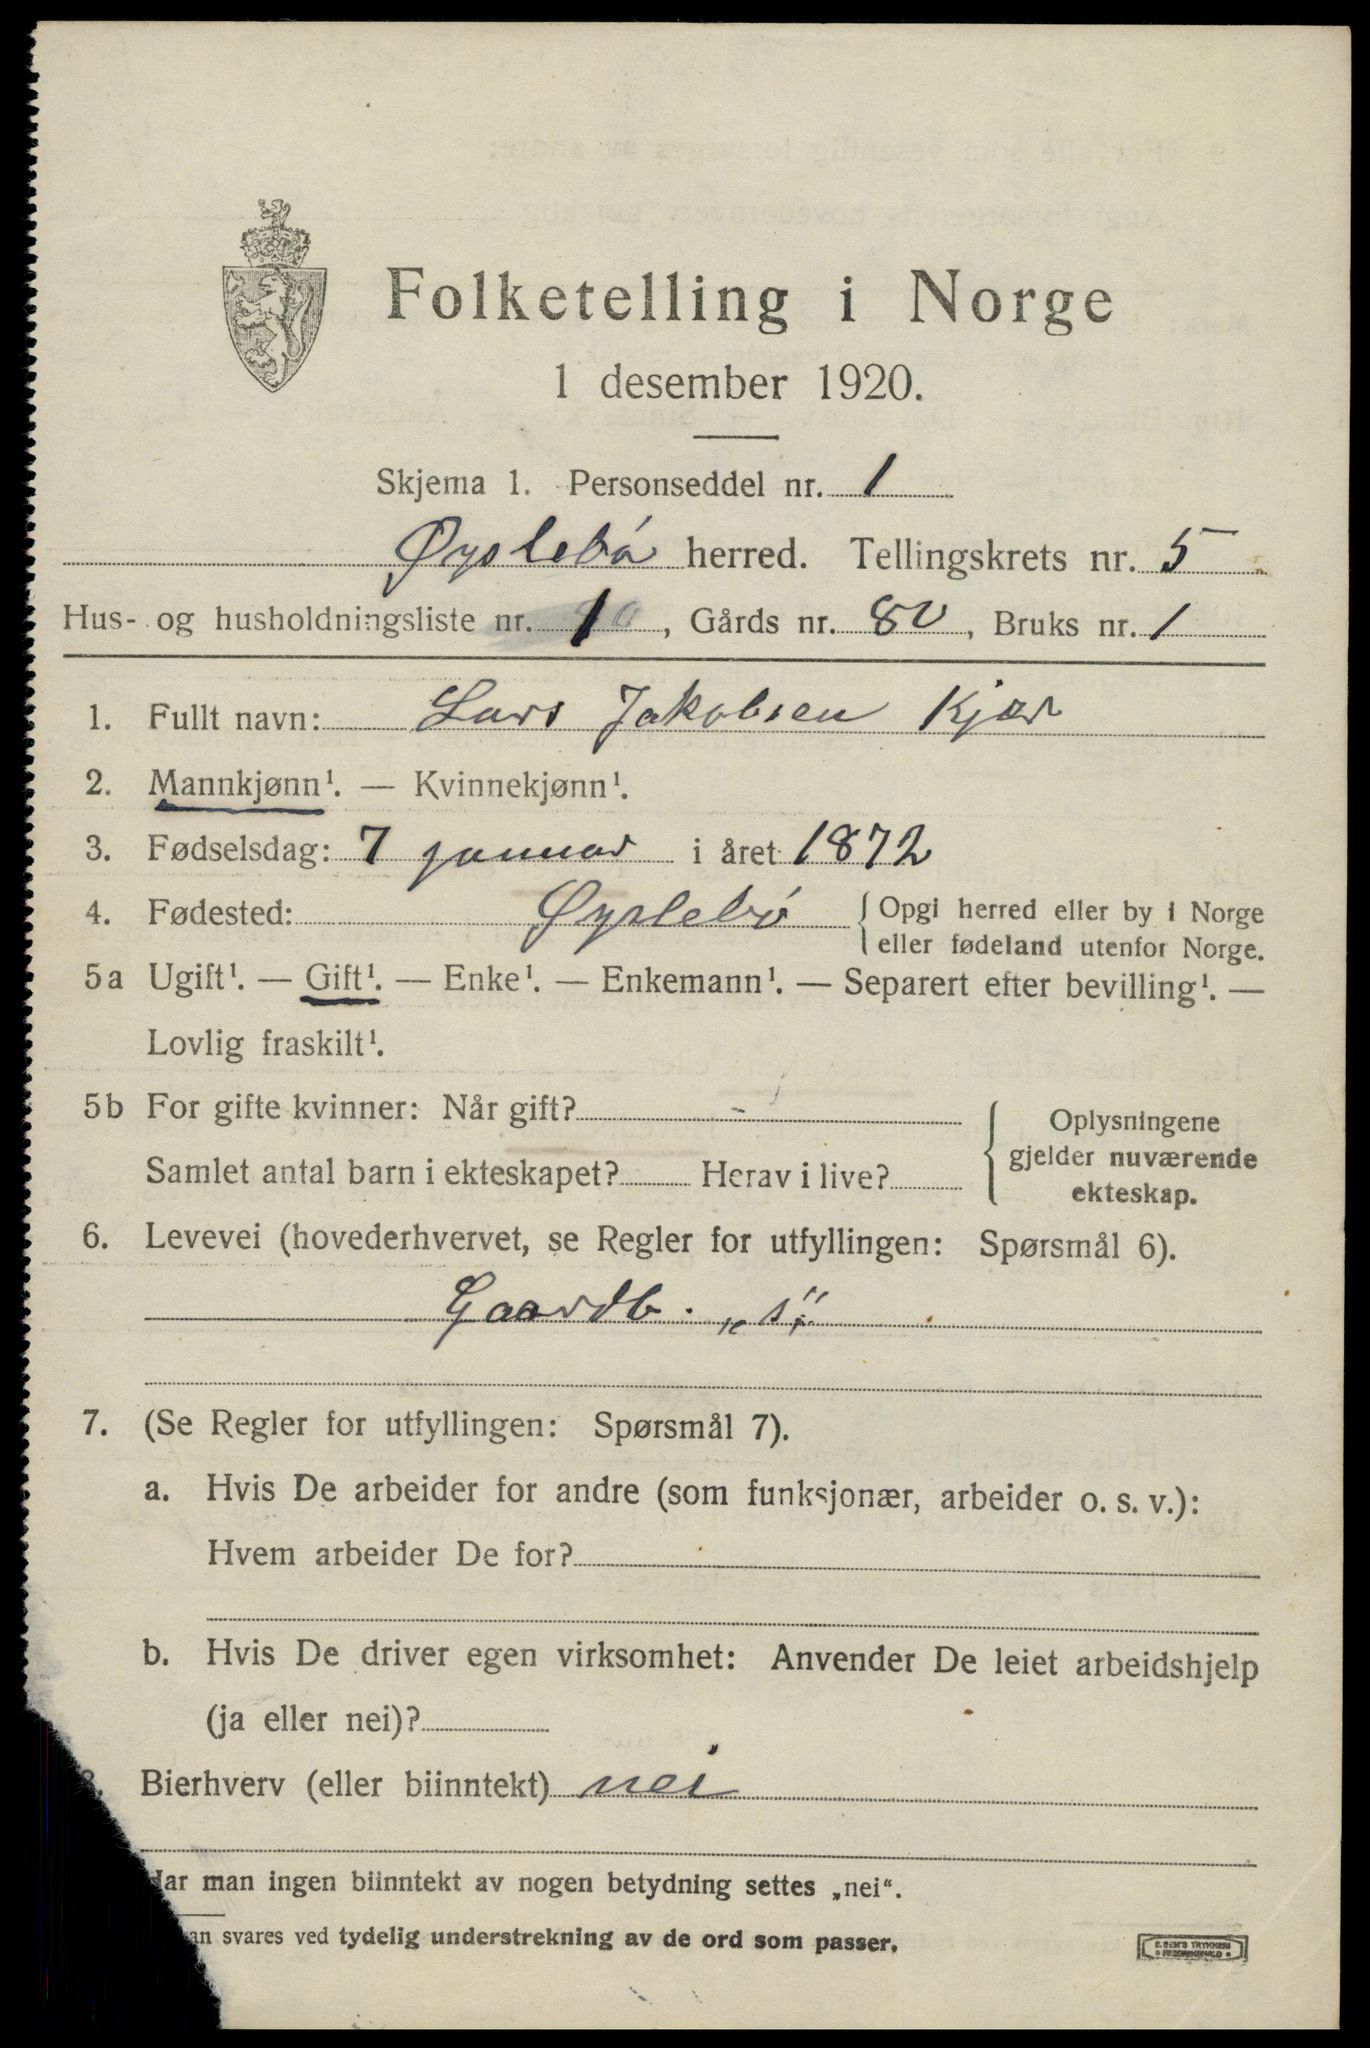 Folketelling i Norge
1 desember 1920.
Skjema 1. Personseddel nr. 1
Øyslebø herred. Tellingskrets nr. 5
Hus- og husholdningsliste nr. 1, Gårds nr. 80, Bruks nr. 1
1. Fullt navn: Lars Jakobsen Kjær
2. Mannkjønn¹. — Kvinnekjønn¹.
3. Fødselsdag: 7 januar i året 1872
4. Fødested: Øyslebø { Opgi herred eller by i Norge
eller fødeland utenfor Norge.
5a Ugift¹. — Gift¹. — Enke¹. — Enkemann¹. — Separert efter bevilling¹. —
Lovlig fraskilt¹.
5b For gifte kvinner: Når gift? -
Samlet antal barn i ekteskapet? Herav i live?
{ Oplysningene
gjelder nuværende
ekteskap.
6. Levevei (hovederhvervet, se Regler for utfyllingen: Spørsmål 6).
Gaardb. „s“
7. (Se Regler for utfyllingen: Spørsmål 7).
a. Hvis De arbeider for andre (som funksjonær, arbeider o. s. v.):
Hvem arbeider De for?
b. Hvis De driver egen virksomhet: Anvender De leiet arbeidshjelp
(ja eller nei)?
8. Bierhverv (eller biinntekt) nei
Har man ingen biinntekt av nogen betydning settes „nei“.
an svares ved tydelig understrekning av de ord som passer.
E. SEM'S TRYKKERI
FREDRIKSHALD